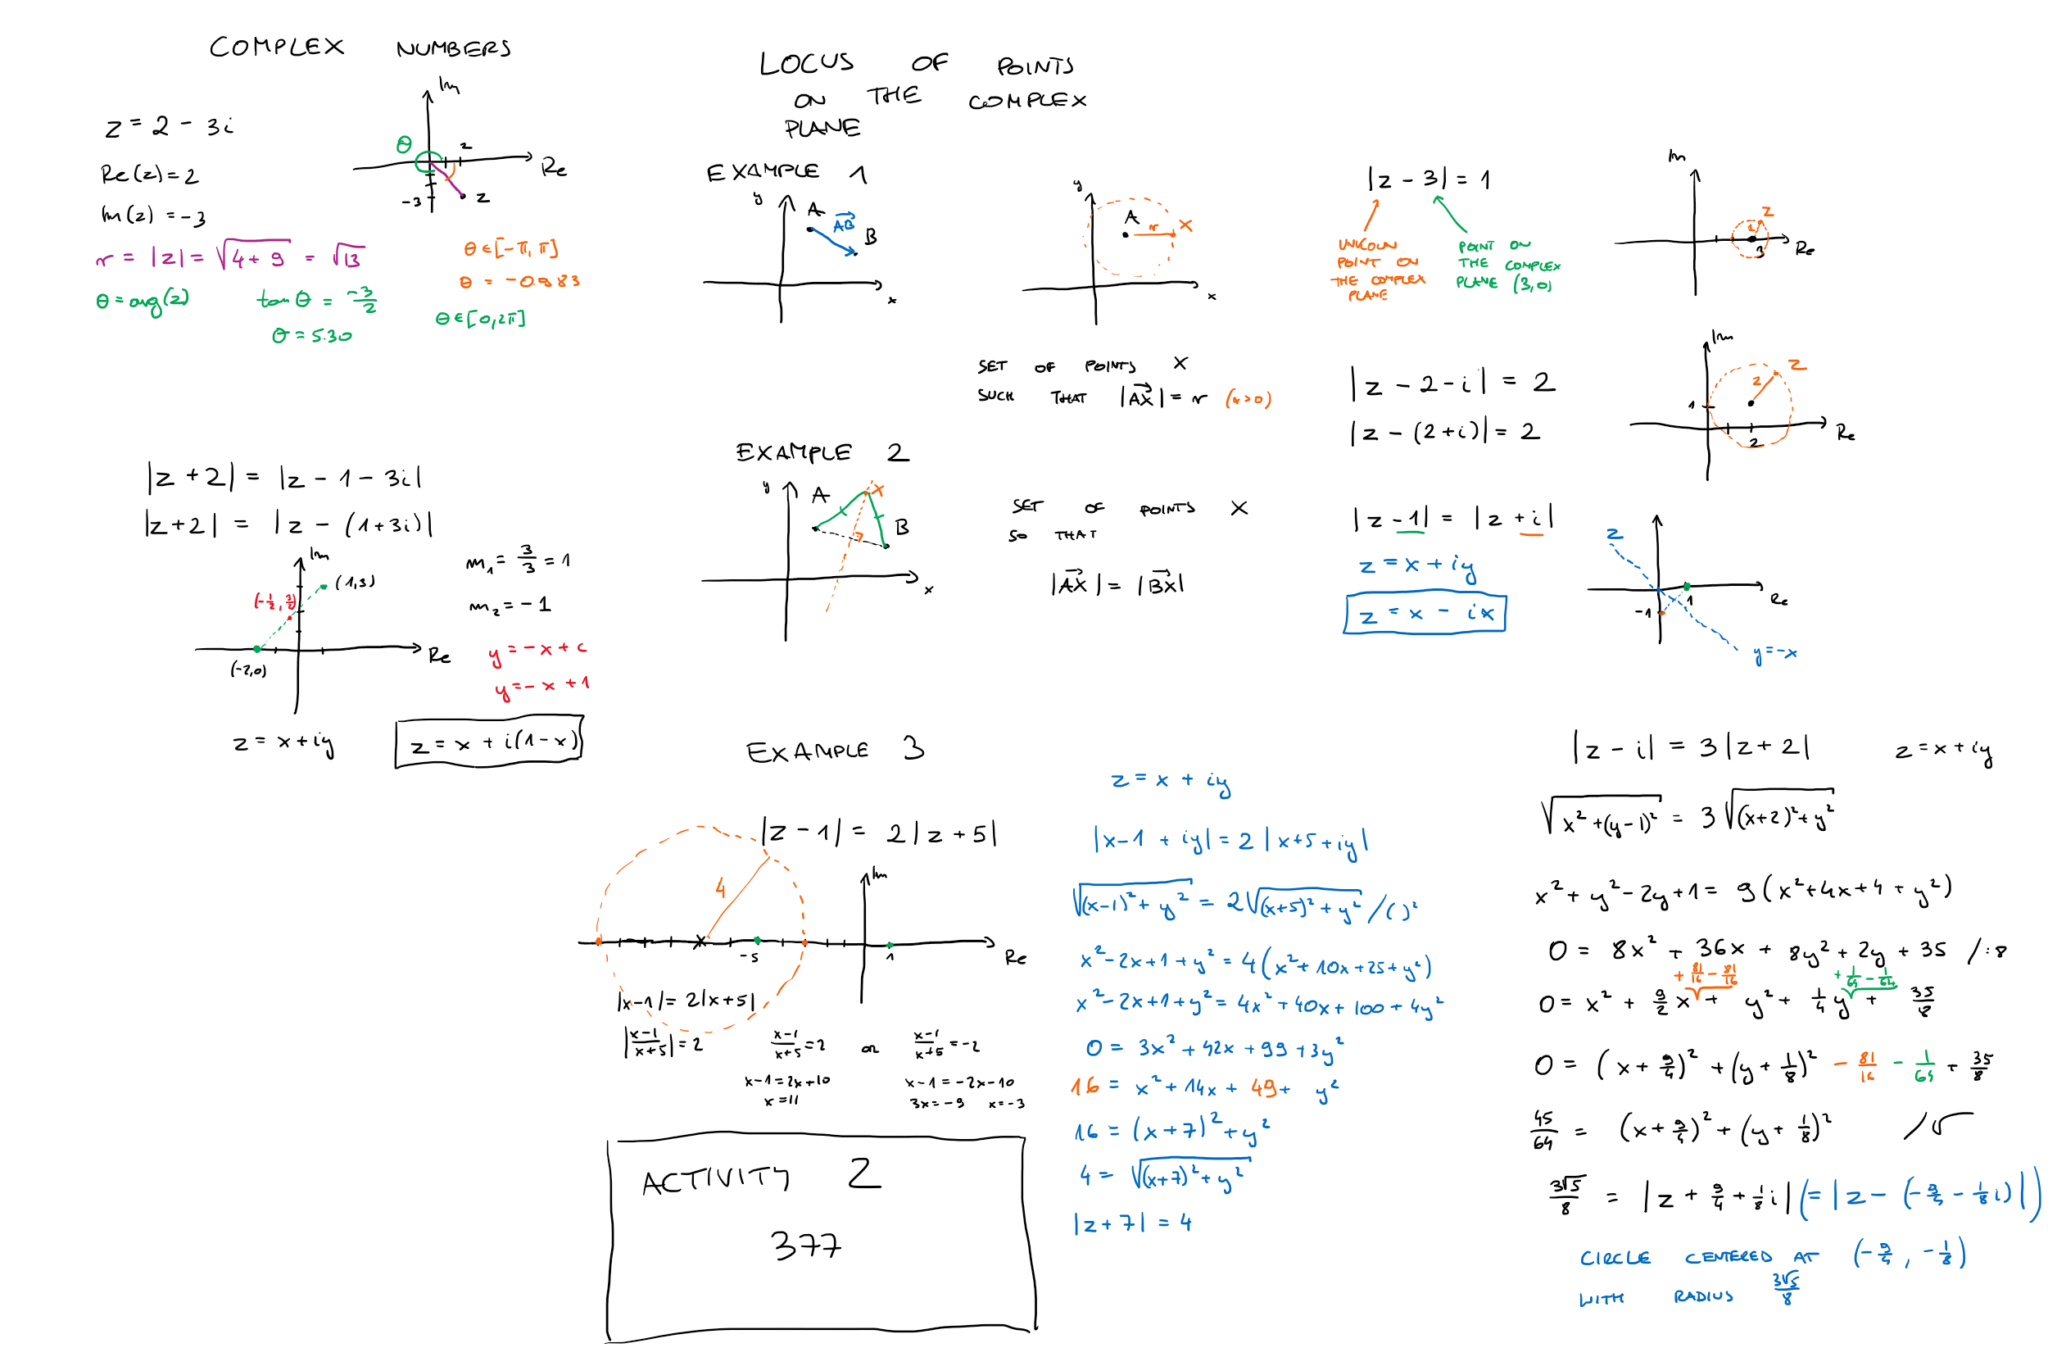 COMPLEX NUMBERS
z = 2 - 3i
Re(z) = 2
Im(z) = -3
r = |z| = √(4+9) = √13
θ = arg(z)
tan θ = -3/2
θ = 5.30
θ ∈ [-π, π]
θ = -0.983
θ ∈ [0, 2π]
Im
θ
2
Re
-3
z
|z+2| = |z - 1 - 3i|
|z+2| = |z - (1+3i)|
Im
(1,3)
(-1/2, 3/2)
Re
(-2,0)
m₁ = 3/3 = 1
m₂ = -1
y = -x + c
y = -x + 1
z = x + iy
z = x + i(1-x)
LOCUS OF POINTS
ON THE COMPLEX
PLANE
EXAMPLE 1
y
A
AB
B
x
y
A
r
X
x
SET OF POINTS X
SUCH THAT |AX| = r (r>0)
|z - 3| = 1
UNKOUN
POINT ON
THE COMPLEX
PLANE
POINT ON
THE COMPLEX
PLANE (3,0)
Im
z
3
Re
|z - 2 - i| = 2
|z - (2+i)| = 2
Im
z
2
1
2
Re
EXAMPLE 2
y
A
X
B
x
SET OF POINTS X
SO THAT
|AX| = |BX|
|z - 1| = |z + i|
z = x + iy
z = x - ix
z
1
-1
Re
y = -x
EXAMPLE 3
|z - 1| = 2|z + 5|
4
Im
-5
1
Re
|x-1| = 2|x+5|
|(x-1)/(x+5)| = 2
(x-1)/(x+5) = 2 or (x-1)/(x+5) = -2
x-1 = 2x+10
x = 11
x-1 = -2x-10
3x = -9 x = -3
ACTIVITY 2
377
z = x + iy
|x-1 + iy| = 2|x+5+iy|
√((x-1)² + y²) = 2√((x+5)² + y²) /()²
x² - 2x + 1 + y² = 4(x² + 10x + 25 + y²)
x² - 2x + 1 + y² = 4x² + 40x + 100 + 4y²
0 = 3x² + 42x + 99 + 3y²
16 = x² + 14x + 49 + y²
16 = (x+7)² + y²
4 = √((x+7)² + y²)
|z+7| = 4
|z - i| = 3|z + 2| z = x + iy
√(x² + (y-1)²) = 3√((x+2)² + y²)
x² + y² - 2y + 1 = 9(x² + 4x + 4 + y²)
0 = 8x² + 36x + 8y² + 2y + 35 /:8
+ 81/16 - 81/16 + 1/64 - 1/64
0 = x² + 9/2 x + y² + 1/4 y + 35/8
0 = (x + 9/4)² + (y + 1/8)² - 81/16 - 1/64 + 35/8
45/64 = (x + 9/4)² + (y + 1/8)² /√
3√5/8 = |z + 9/4 + 1/8 i| (= |z - (-9/4 - 1/8 i)|)
CIRCLE CENTERED AT (-9/4, -1/8)
WITH RADIUS 3√5/8